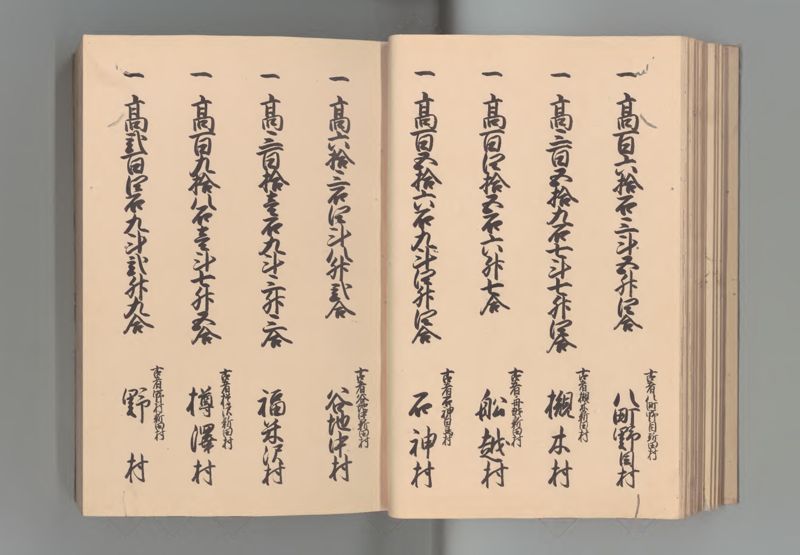 一 高百六拾石三斗五升四合
古者八町野目新田村
八町野目村
一 高三百五拾九石七斗七升四合
古者槻木新田村
槻木村
一 高百四拾五石六升七合
古者舟越新田村
船越村
一 高百五拾六石九斗四升四合
古者石神
石神村
一 高六拾三石四斗八升弐合
古者谷地中新田村
谷地中村
一 高三百拾壱石九斗三升三合
福米沢村
一 高百九拾八石壱斗七升五合
古者樽沢新田村
樽澤村
一 高弐百四石九斗弐升九合
古者野村新田村
野村